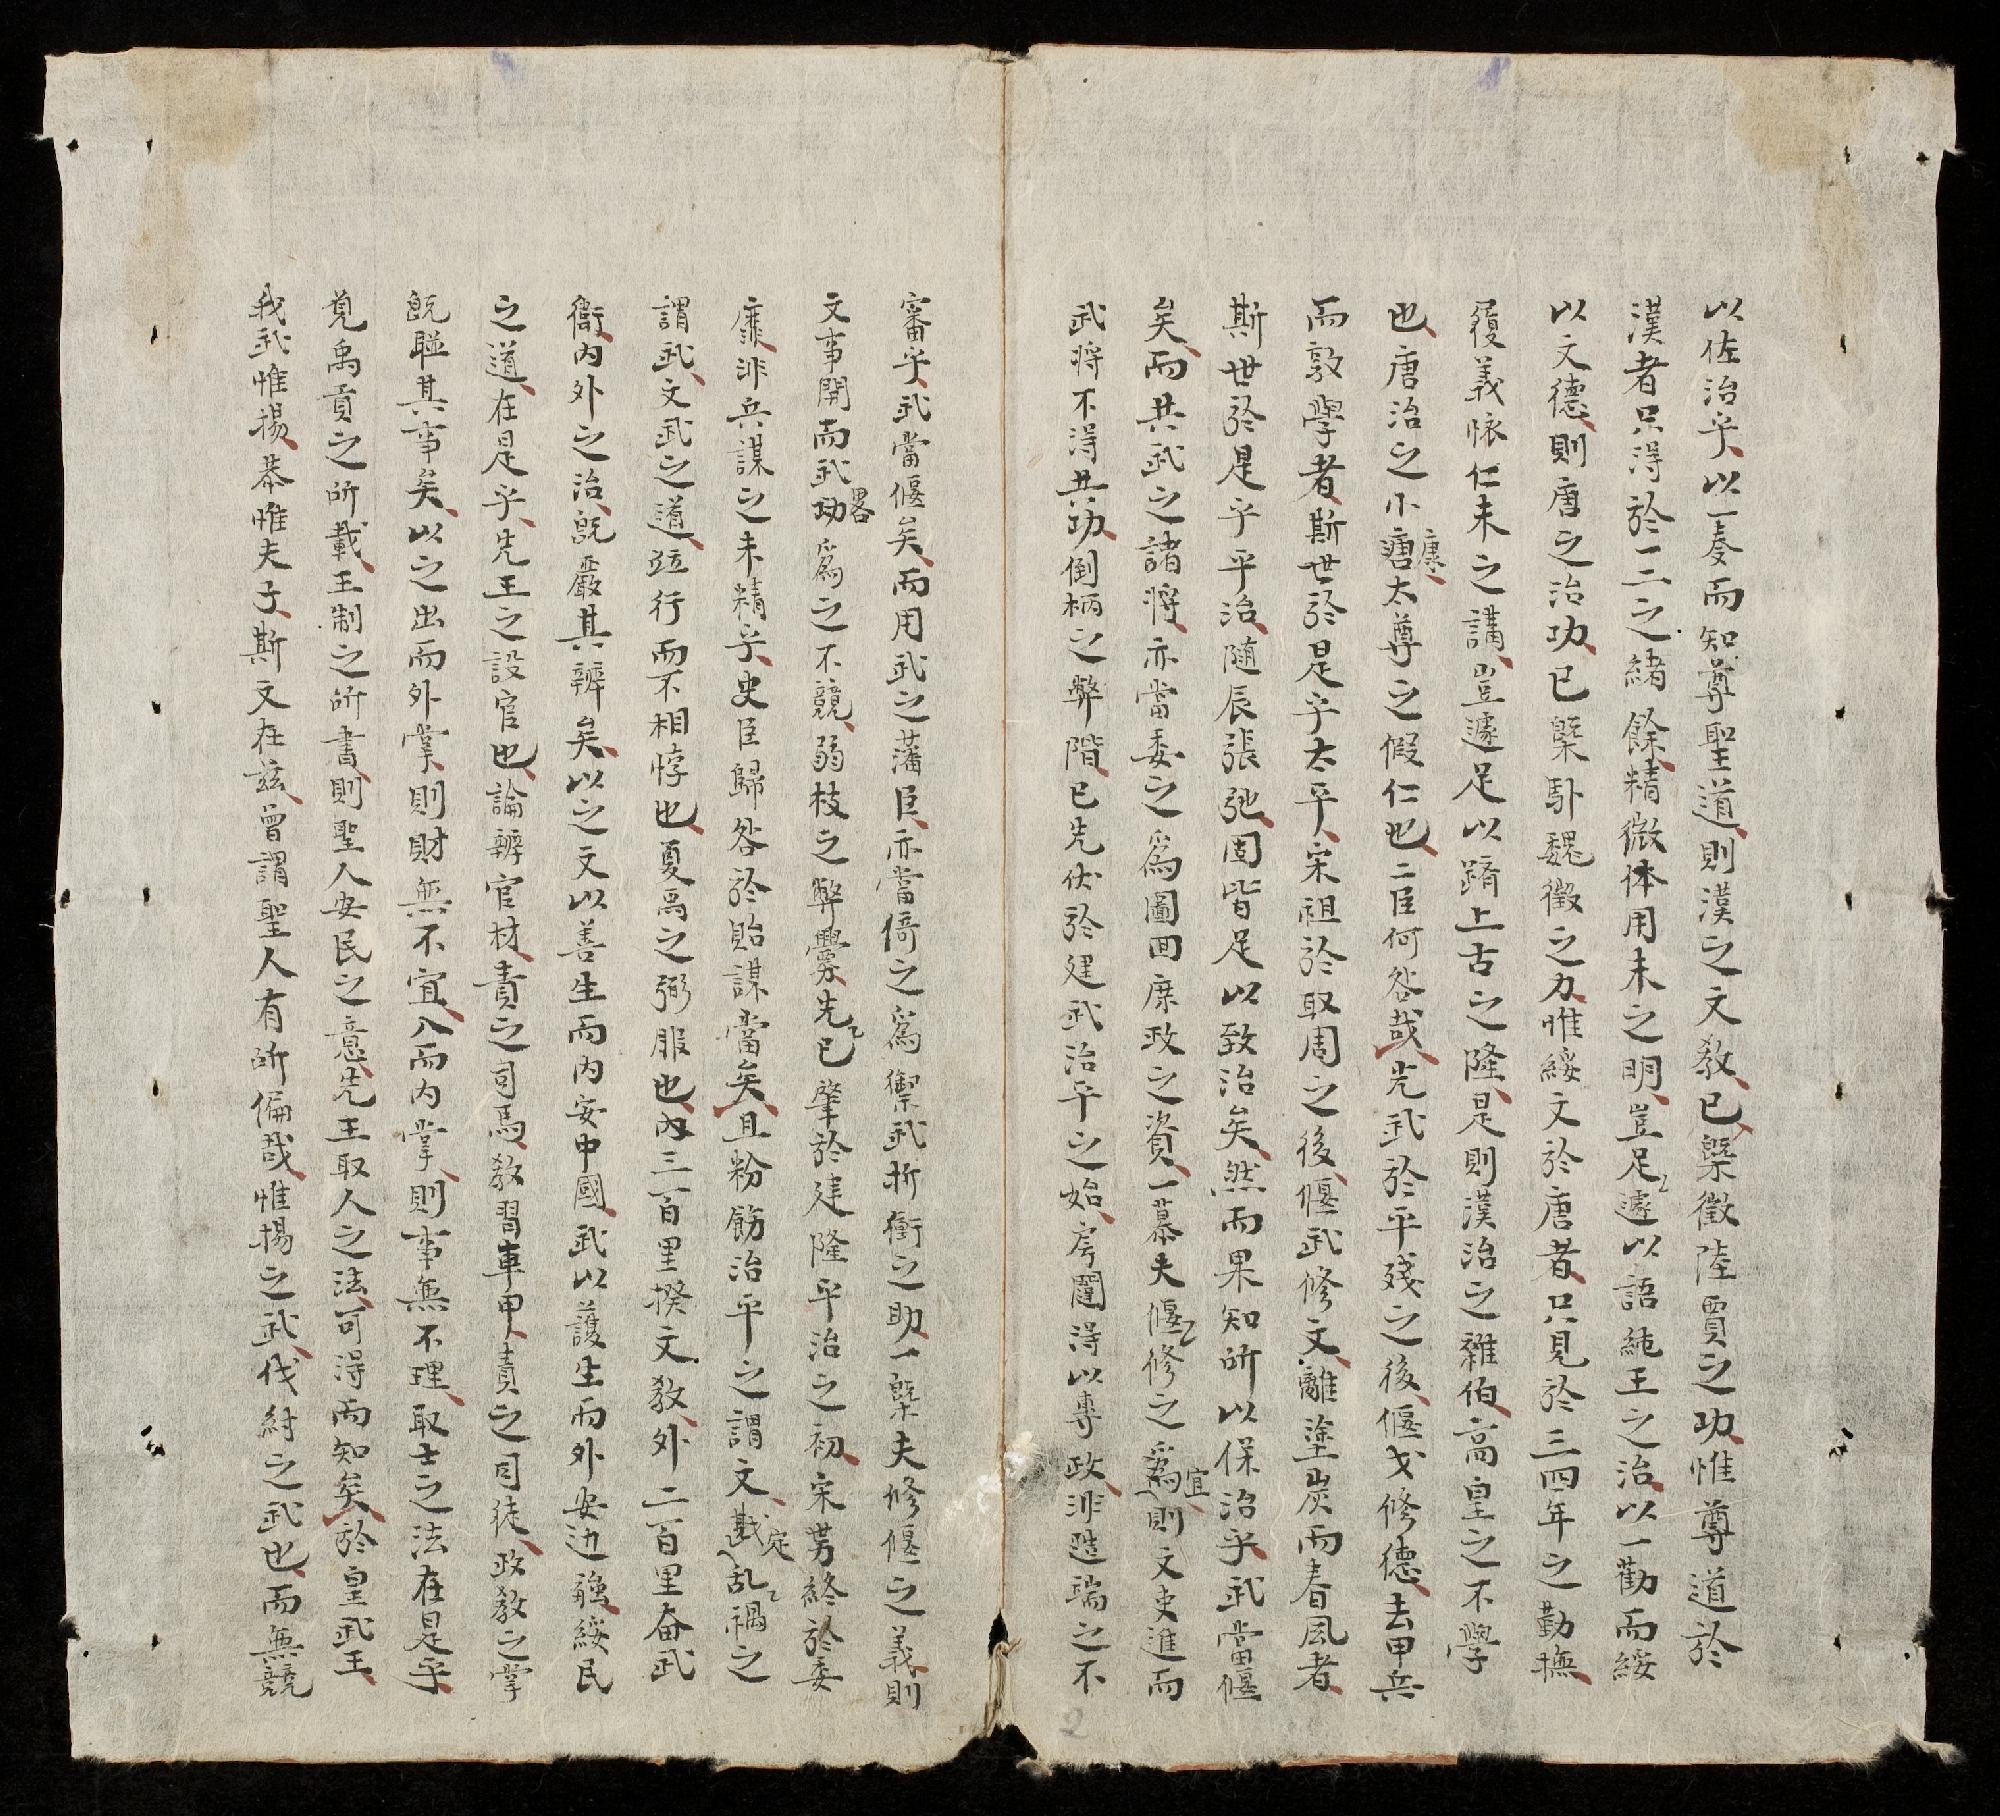 以佐治乎以一奏而知尊聖道則漢之文教已槩徵陸賈之功惟尊道於
漢者只得於一二之緒餘精微体用未之明豈足遽以語純王之治以一勸而綏
以文德則唐之治功已槩馱魏徵之力惟綏文於唐者只見於三四年之勤撫
履義懷仁未之講豈遽足以躋上古之隆是則漢治之雜伯高皇之不學
也唐治之小康太尊之假仁也二臣何咎哉光武於平殘之後偃戈修德去甲兵
而敦學者斯世於是乎太平宋祖於取周之後偃武修文離塗炭而春風者
斯世於是乎平治随辰張弛固皆足以致治矣然而果知所以保治乎武當偃
矣而其武之諸將亦當委之爲圖囬庶政之資一慕夫偃修之爲宜則文吏進而
武將不得其功倒柄之弊階已先伏於建武治平之始房闥得以專政非造端之不
審乎武當偃矣而用武之藩臣亦當倚之爲禦武折衝之助一槩夫修偃之義則
文事開而武功畧爲之不競弱枝之弊釁先已肇於建隆平治之初宋势終於委
靡非兵謀之未精乎史臣歸咎於貽謀當矣且粉餙治平之謂文戡定乱禍之
謂武文武之道並行而不相悖也夏禹之弼服也内三百里揆文教外二百里奋武
衛内外之治既嚴其辨矣以之文以善生而内安中國武以護生而外安边疆綏民
之道在是乎先王之設官也論辨官材責之司馬教習車甲責之司徒政教之掌
既聮其事矣以之出而外掌則財無不宜入而内掌則事無不理取士之法在是乎
覓禹貢之所載王制之所書則聖人安民之意先王取人之法可得而知矣於皇武王
我武惟揚恭惟夫子斯文在兹曾謂聖人有所偏哉惟揚之武伐紂之武也而無競